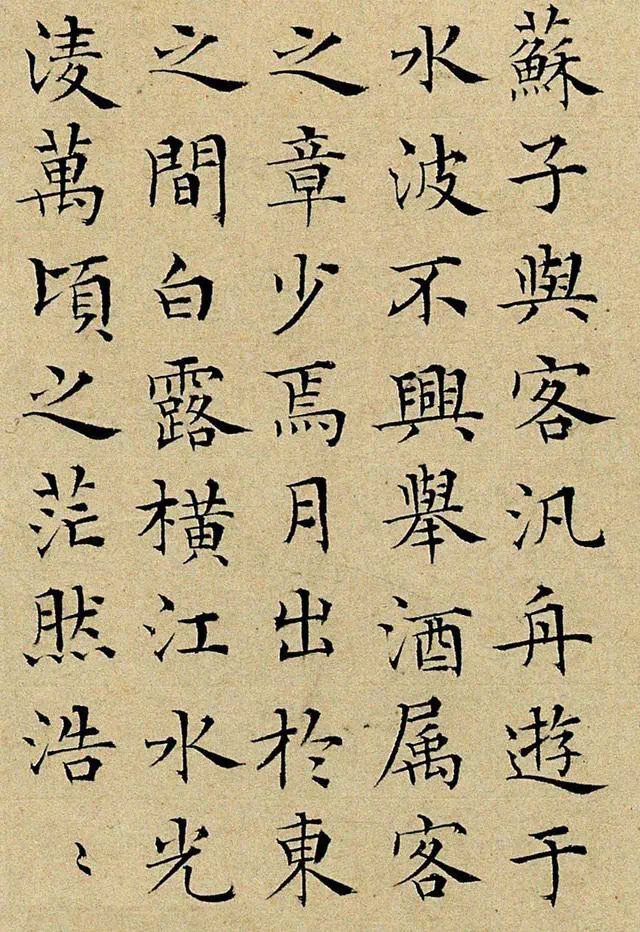 蘇子與客汎舟遊于
水波不興舉酒属客
之章少焉月出於東
之間白露橫江水光
淩萬頃之茫然浩〻